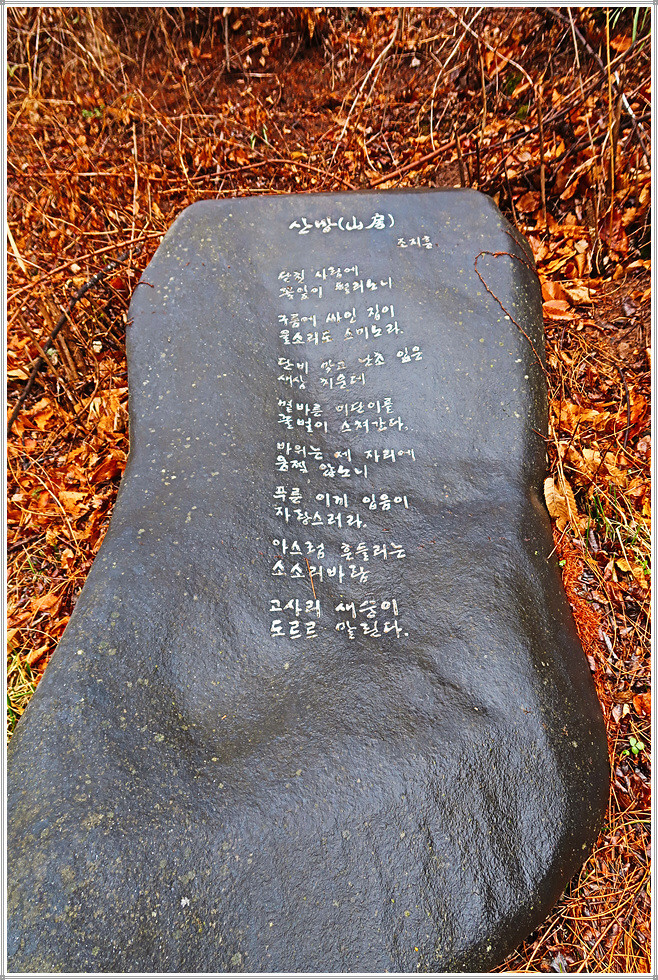 산방(山房)
조지훈
닫힌 사립에
꽃잎이 떨리노니
구름에 싸인 집이
물소리도 스미노라.
단비 맞고 난초 잎은
새삼 치운데
볕바른 미닫이를
꿀벌이 스쳐간다.
바위는 제 자리에
움찍 않노니
푸른 이끼 입음이
자랑스러라.
아스럼 흔들리는
소소리바람
고사리 새순이
도르르 말린다.